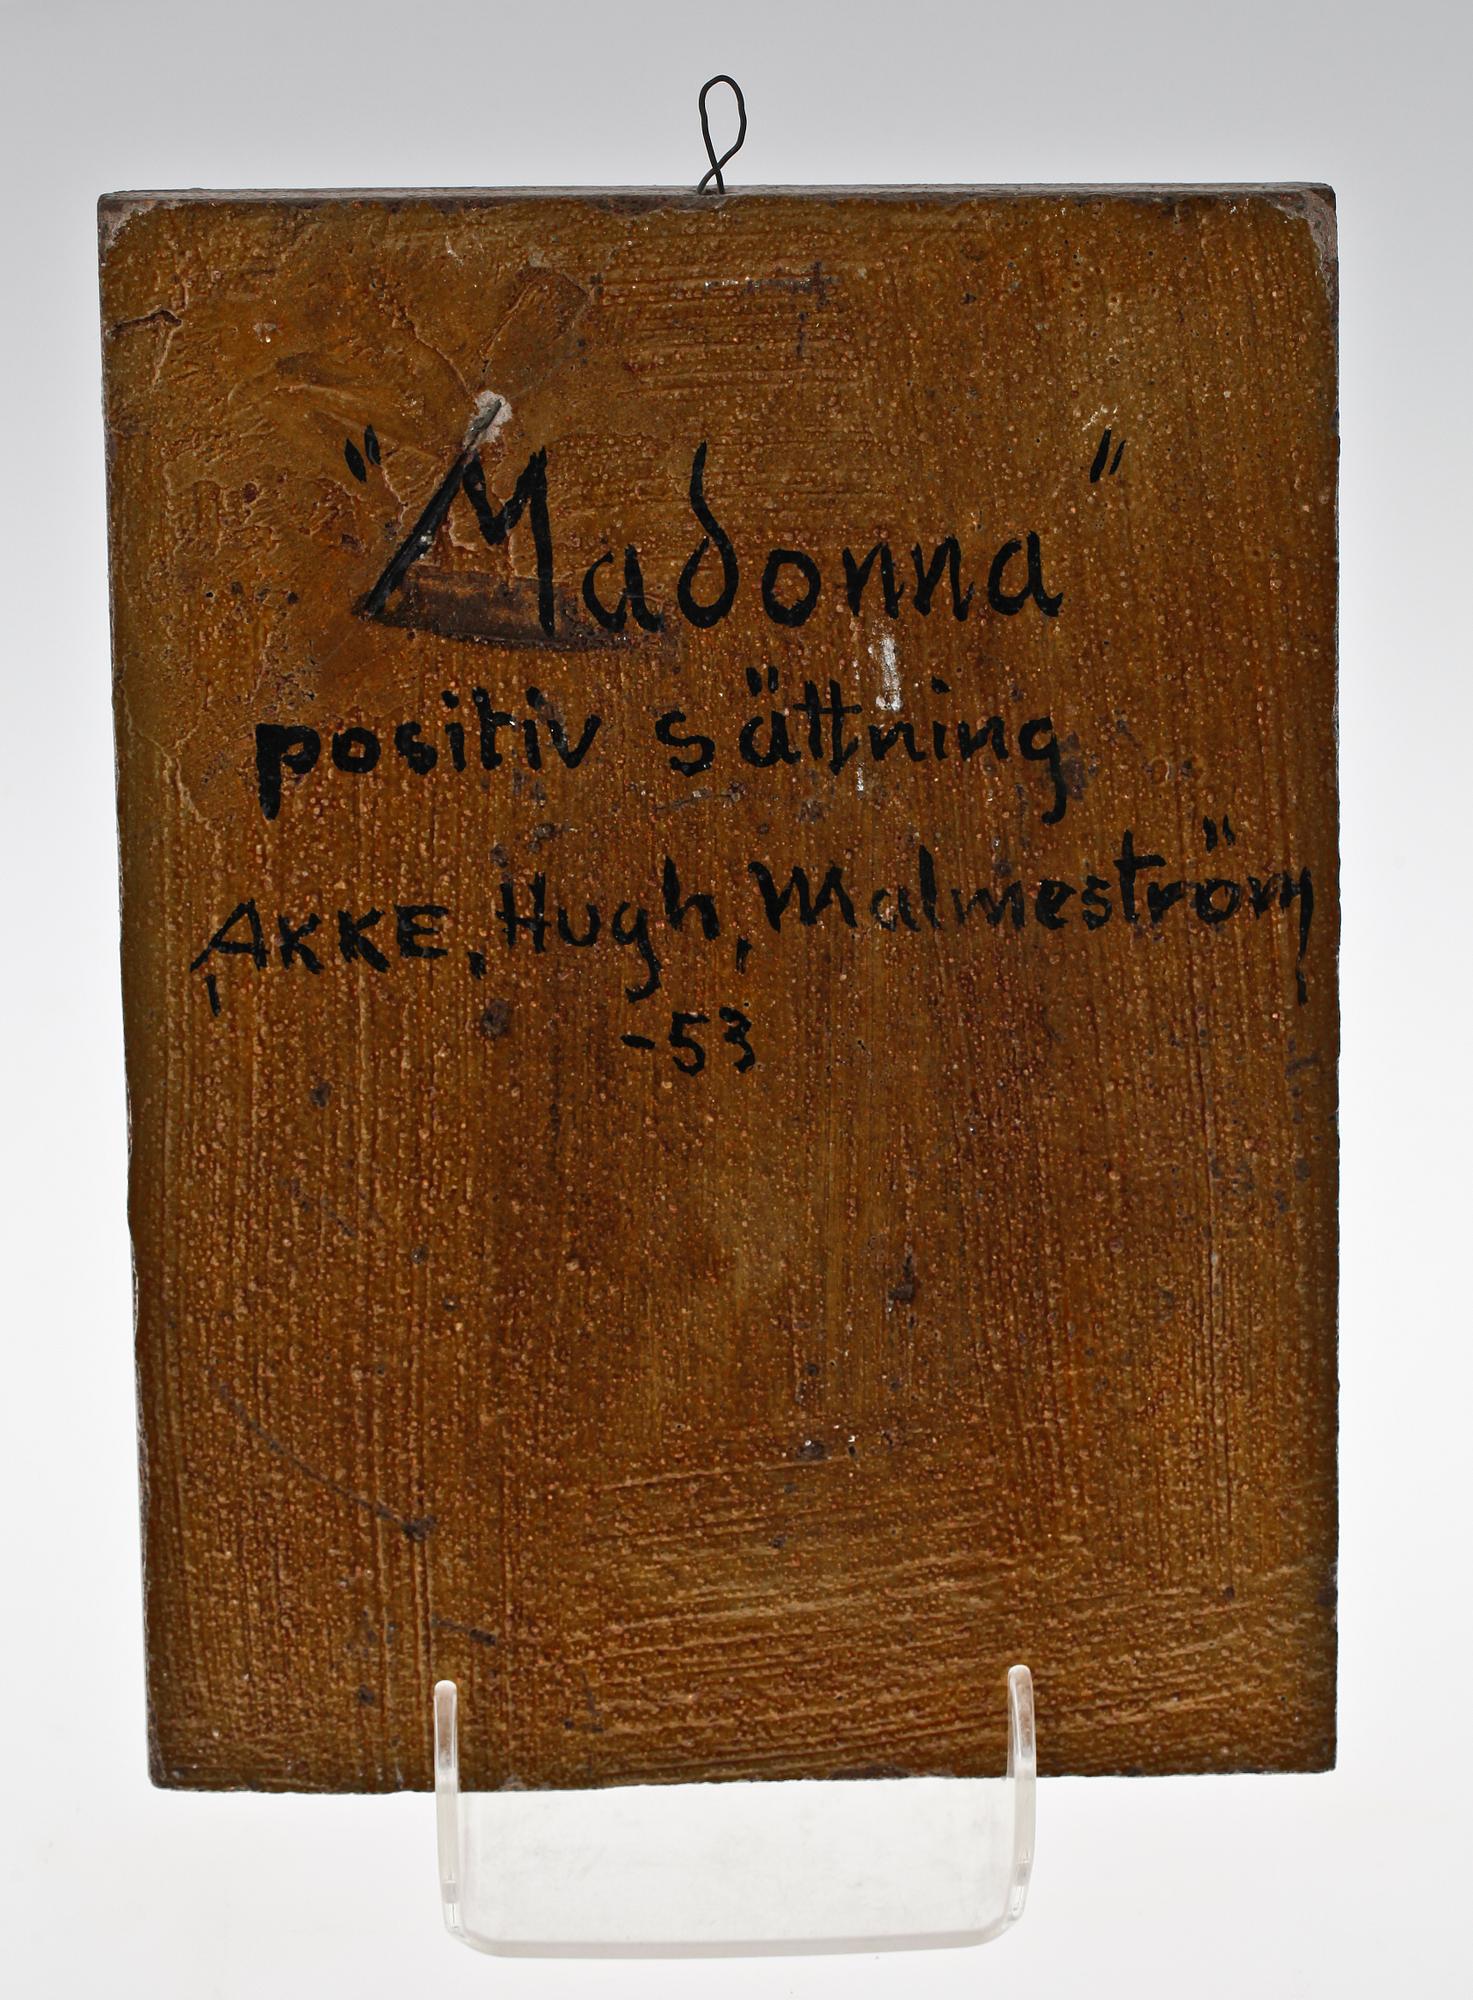 "Madonna"
positiv sättning
AKKE, Hugh, Malmeström
-53